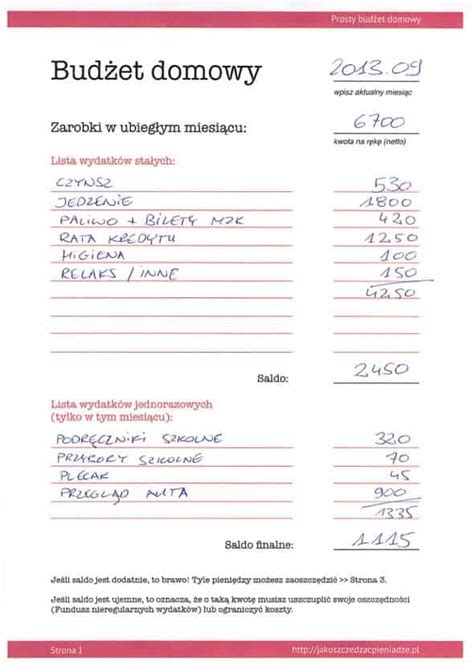 Prosty budżet domowy
Budżet domowy 2013.09
wpisz aktualny miesiąc
Zarobki w ubiegłym miesiącu: 6700
kwota na rękę (netto)
Lista wydatków stałych:
CZYNSZ 530
JEDZENIE 1800
PALIWO + BILETY MZK 420
RATA KREDYTU 1250
HIGIENA 100
RELAKS / INNE 150
4250
Saldo: 2450
Lista wydatków jednorazowych
(tylko w tym miesiącu):
PODRĘCZNIKI SZKOLNE 320
PRZYBORY SZKOLNE 70
PLECAK 45
PRZEGLĄD AUTA 900
1335
Saldo finalne: 1115
Jeśli saldo jest dodatnie, to brawo! Tyle pieniędzy możesz zaoszczędzić >> Strona 3.
Jeśli saldo jest ujemne, to oznacza, że o taką kwotę musisz uszczuplić swoje oszczędności
(Fundusz nieregularnych wydatków) lub ograniczyć koszty.
Strona 1 http://jakoszczedzacpieniadze.pl